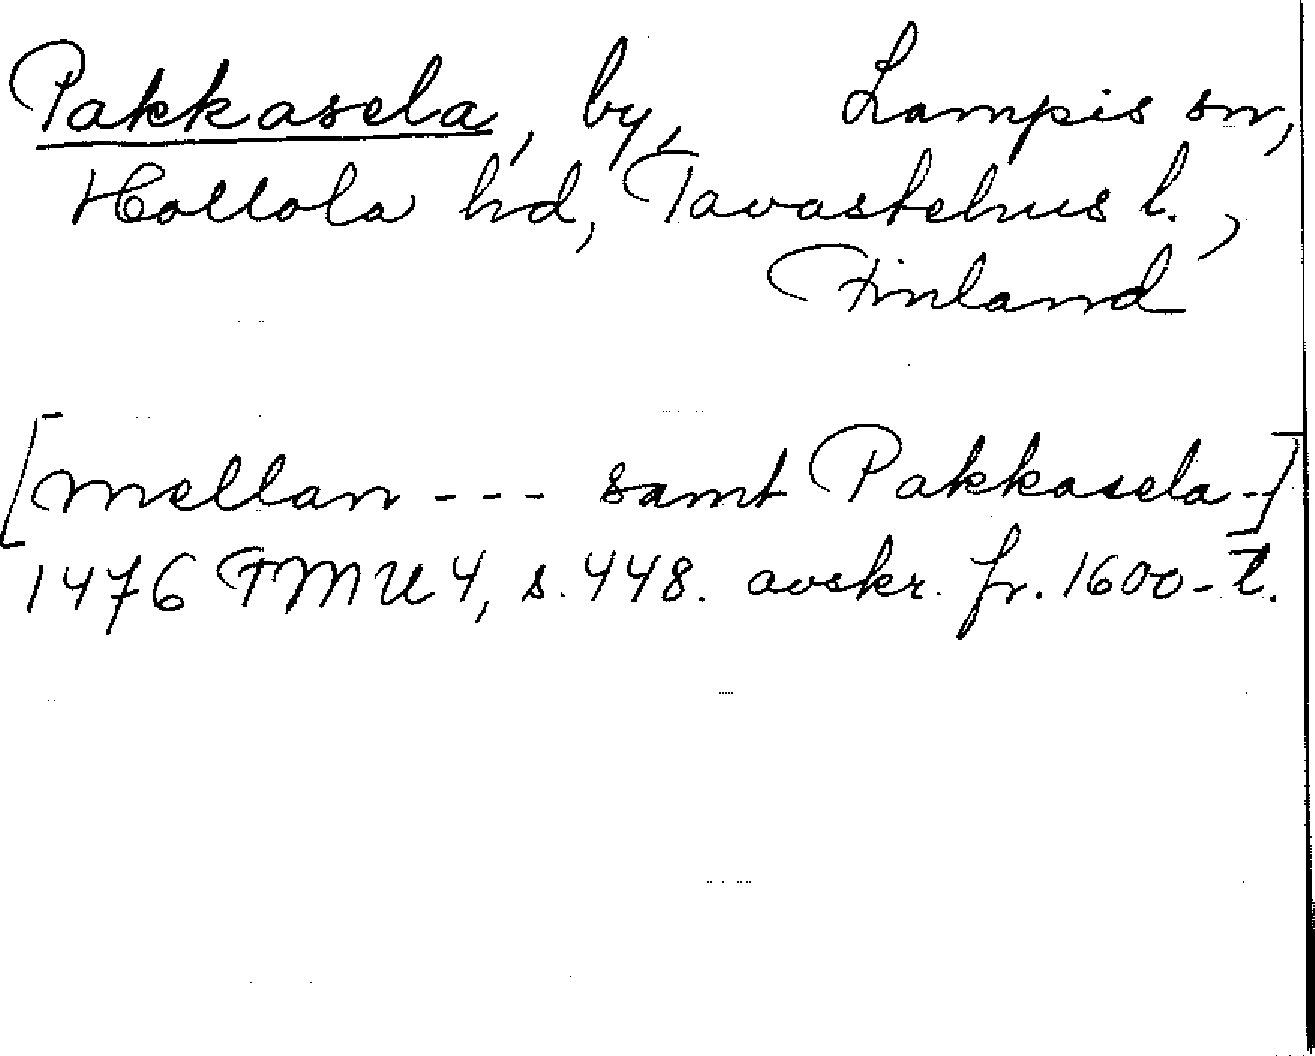 Pakkasela, by, Lampis sn,
Hollola hd, Tavastehus l.,
Finland
[mellan --- samt Pakkasela-]
1476 FMU 4, s. 448. avskr. fr. 1600-t.